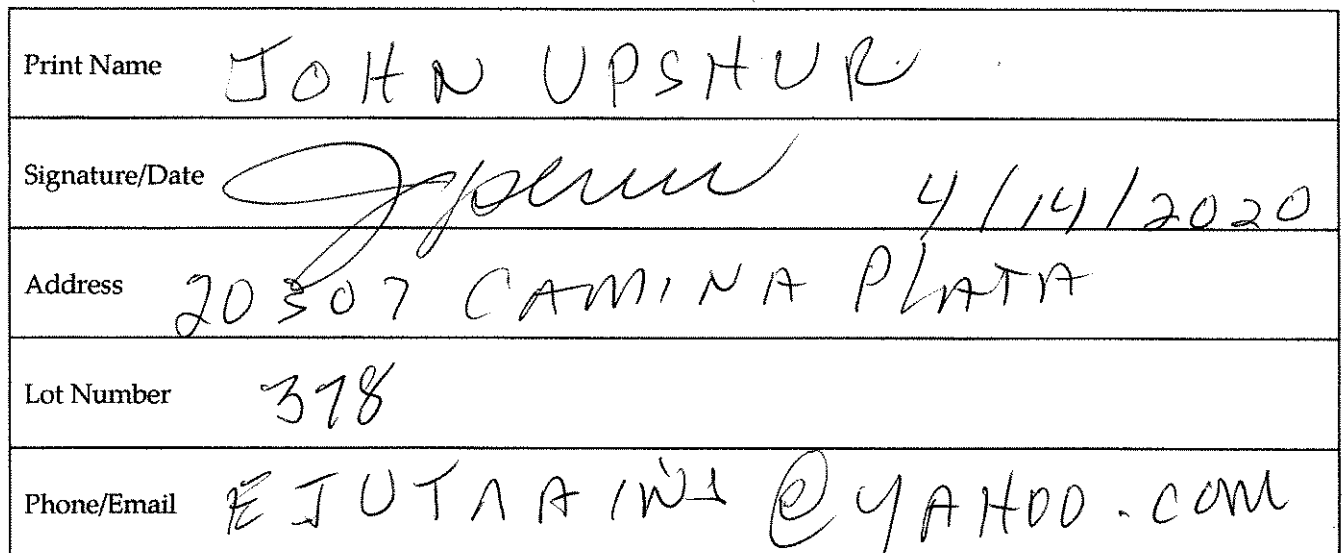 Print Name JOHN UPSHUR
Signature/Date 4/14/2020
Address 20307 CAMINA PLATA
Lot Number 378
Phone/Email @YAHOO.COM